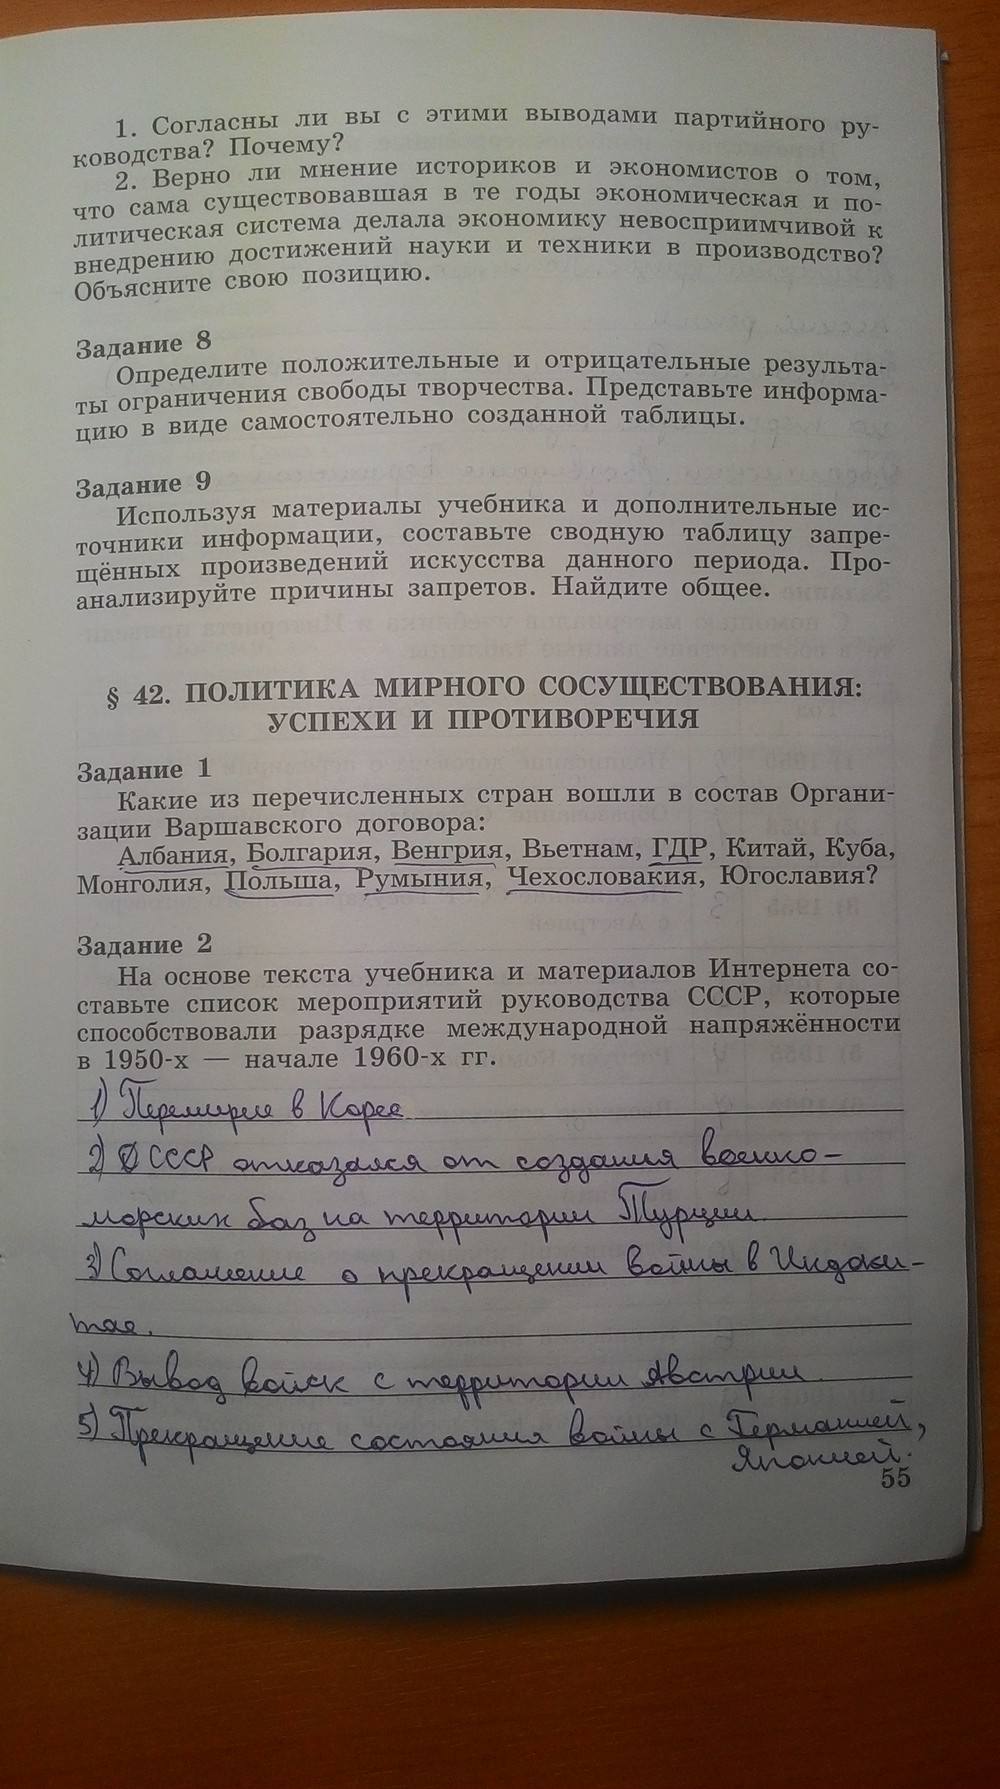 1. Согласны ли вы с этими выводами партийного ру-
ководства? Почему?
2. Верно ли мнение историков и экономистов о том,
что сама существовавшая в те годы экономическая и по-
литическая система делала экономику невосприимчивой к
внедрению достижений науки и техники в производство?
Объясните свою позицию.
Задание 8
Определите положительные и отрицательные результа-
ты ограничения свободы творчества. Представьте информа-
цию в виде самостоятельно созданной таблицы.
Задание 9
Используя материалы учебника и дополнительные ис-
точники информации, составьте сводную таблицу запре-
щённых произведений искусства данного периода. Про-
анализируйте причины запретов. Найдите общее.
§ 42. ПОЛИТИКА МИРНОГО СОСУЩЕСТВОВАНИЯ:
УСПЕХИ И ПРОТИВОРЕЧИЯ
Задание 1
Какие из перечисленных стран вошли в состав Органи-
зации Варшавского договора:
Албания, Болгария, Венгрия, Вьетнам, ГДР, Китай, Куба,
Монголия, Польша, Румыния, Чехословакия, Югославия?
Задание 2
На основе текста учебника и материалов Интернета со-
ставьте список мероприятий руководства СССР, которые
способствовали разрядке международной напряжённости
в 1950-х — начале 1960-х гг.
1) Перемирие в Корее
2) СССР отказался от создания военно-
морских баз на территории Турции
3) Соглашение о прекращении войны в Индоки-
тае.
4) Вывод войск с территории Австрии
5) Прекращение состояния войны с Германией,
Японией.
55